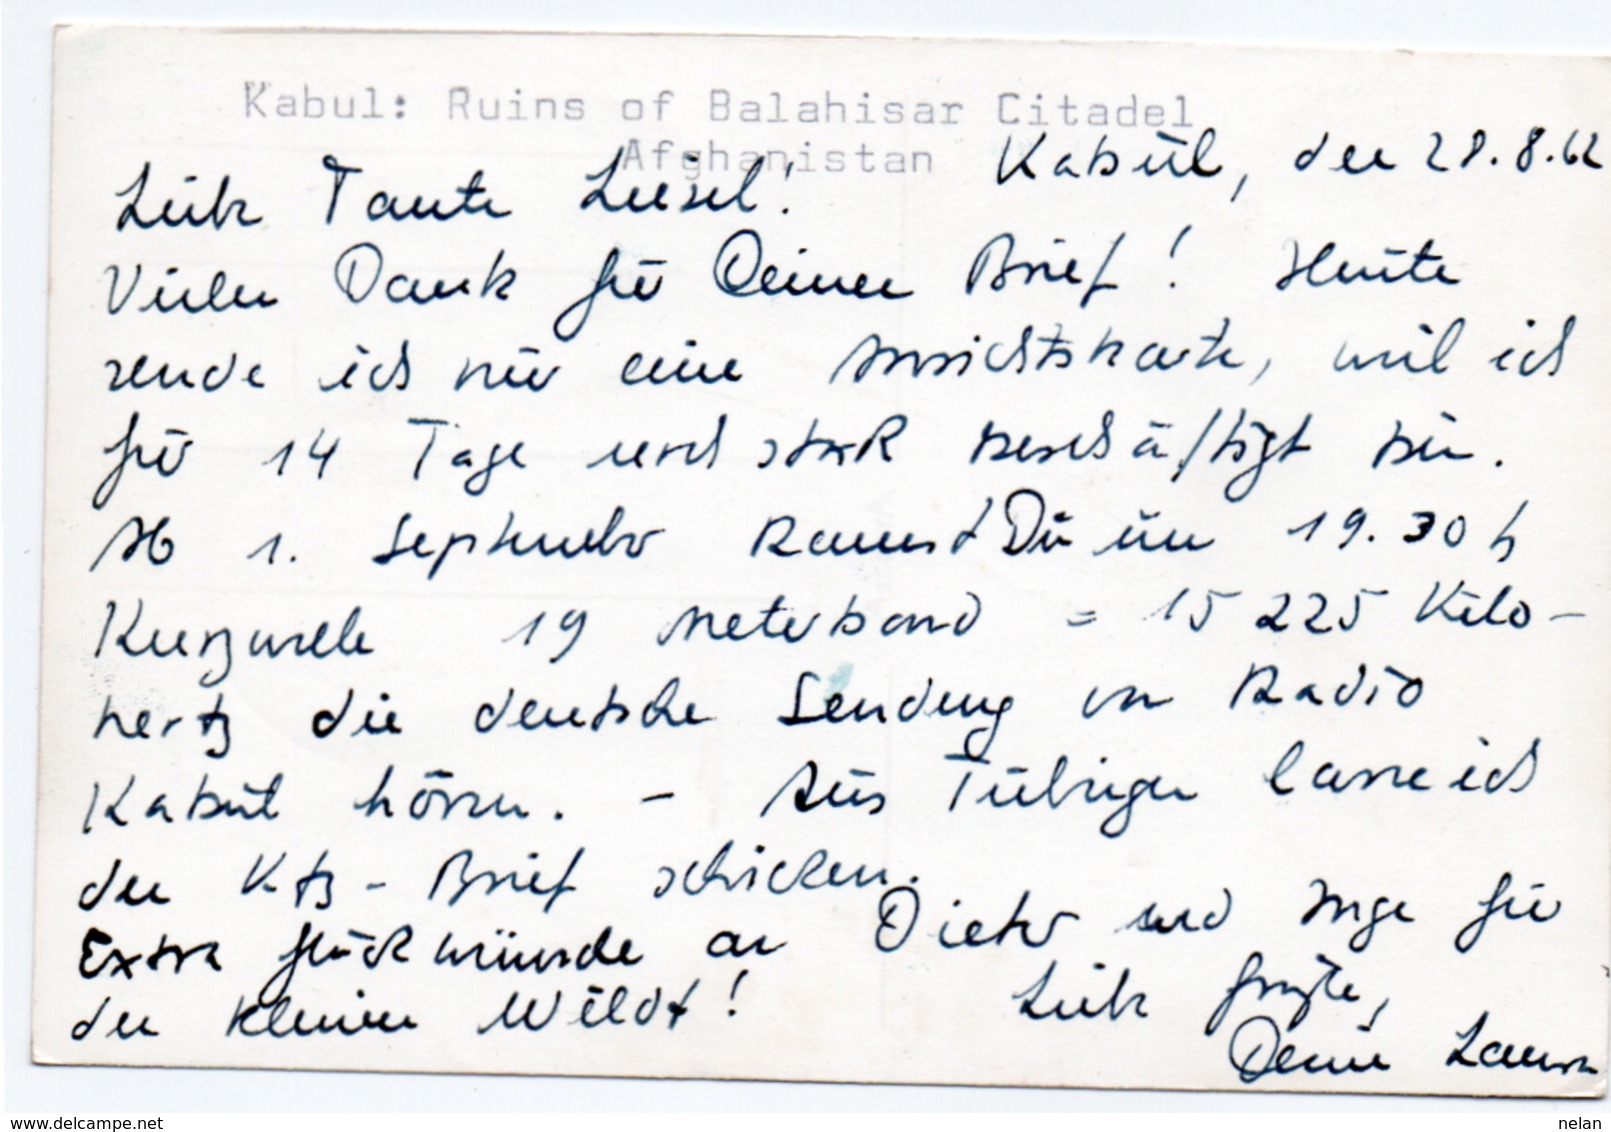 Kabul: Ruins of Balahisar Citadel
Afghanistan
Kabul, den 28.8.62
Liebe Tante Liesel!
Vielen Dank für Deinen Brief! Heute
sende ich nur eine Ansichtskarte, weil ich
für 14 Tage sehr stark beschäftigt bin.
Ab 1. September kannst Du um 19.30 h
Kurzwelle 19 Meterband = 15 225 Kilo-
hertz die deutsche Sendung von Radio
Kabul hören. - Aus Tübingen lasse ich
den Kfz-Brief schicken.
Extra Glückwünsche an Dieter und Inge für
den kleinen
Liebe Grüße,
Deine
www.delcampe.net
nelan